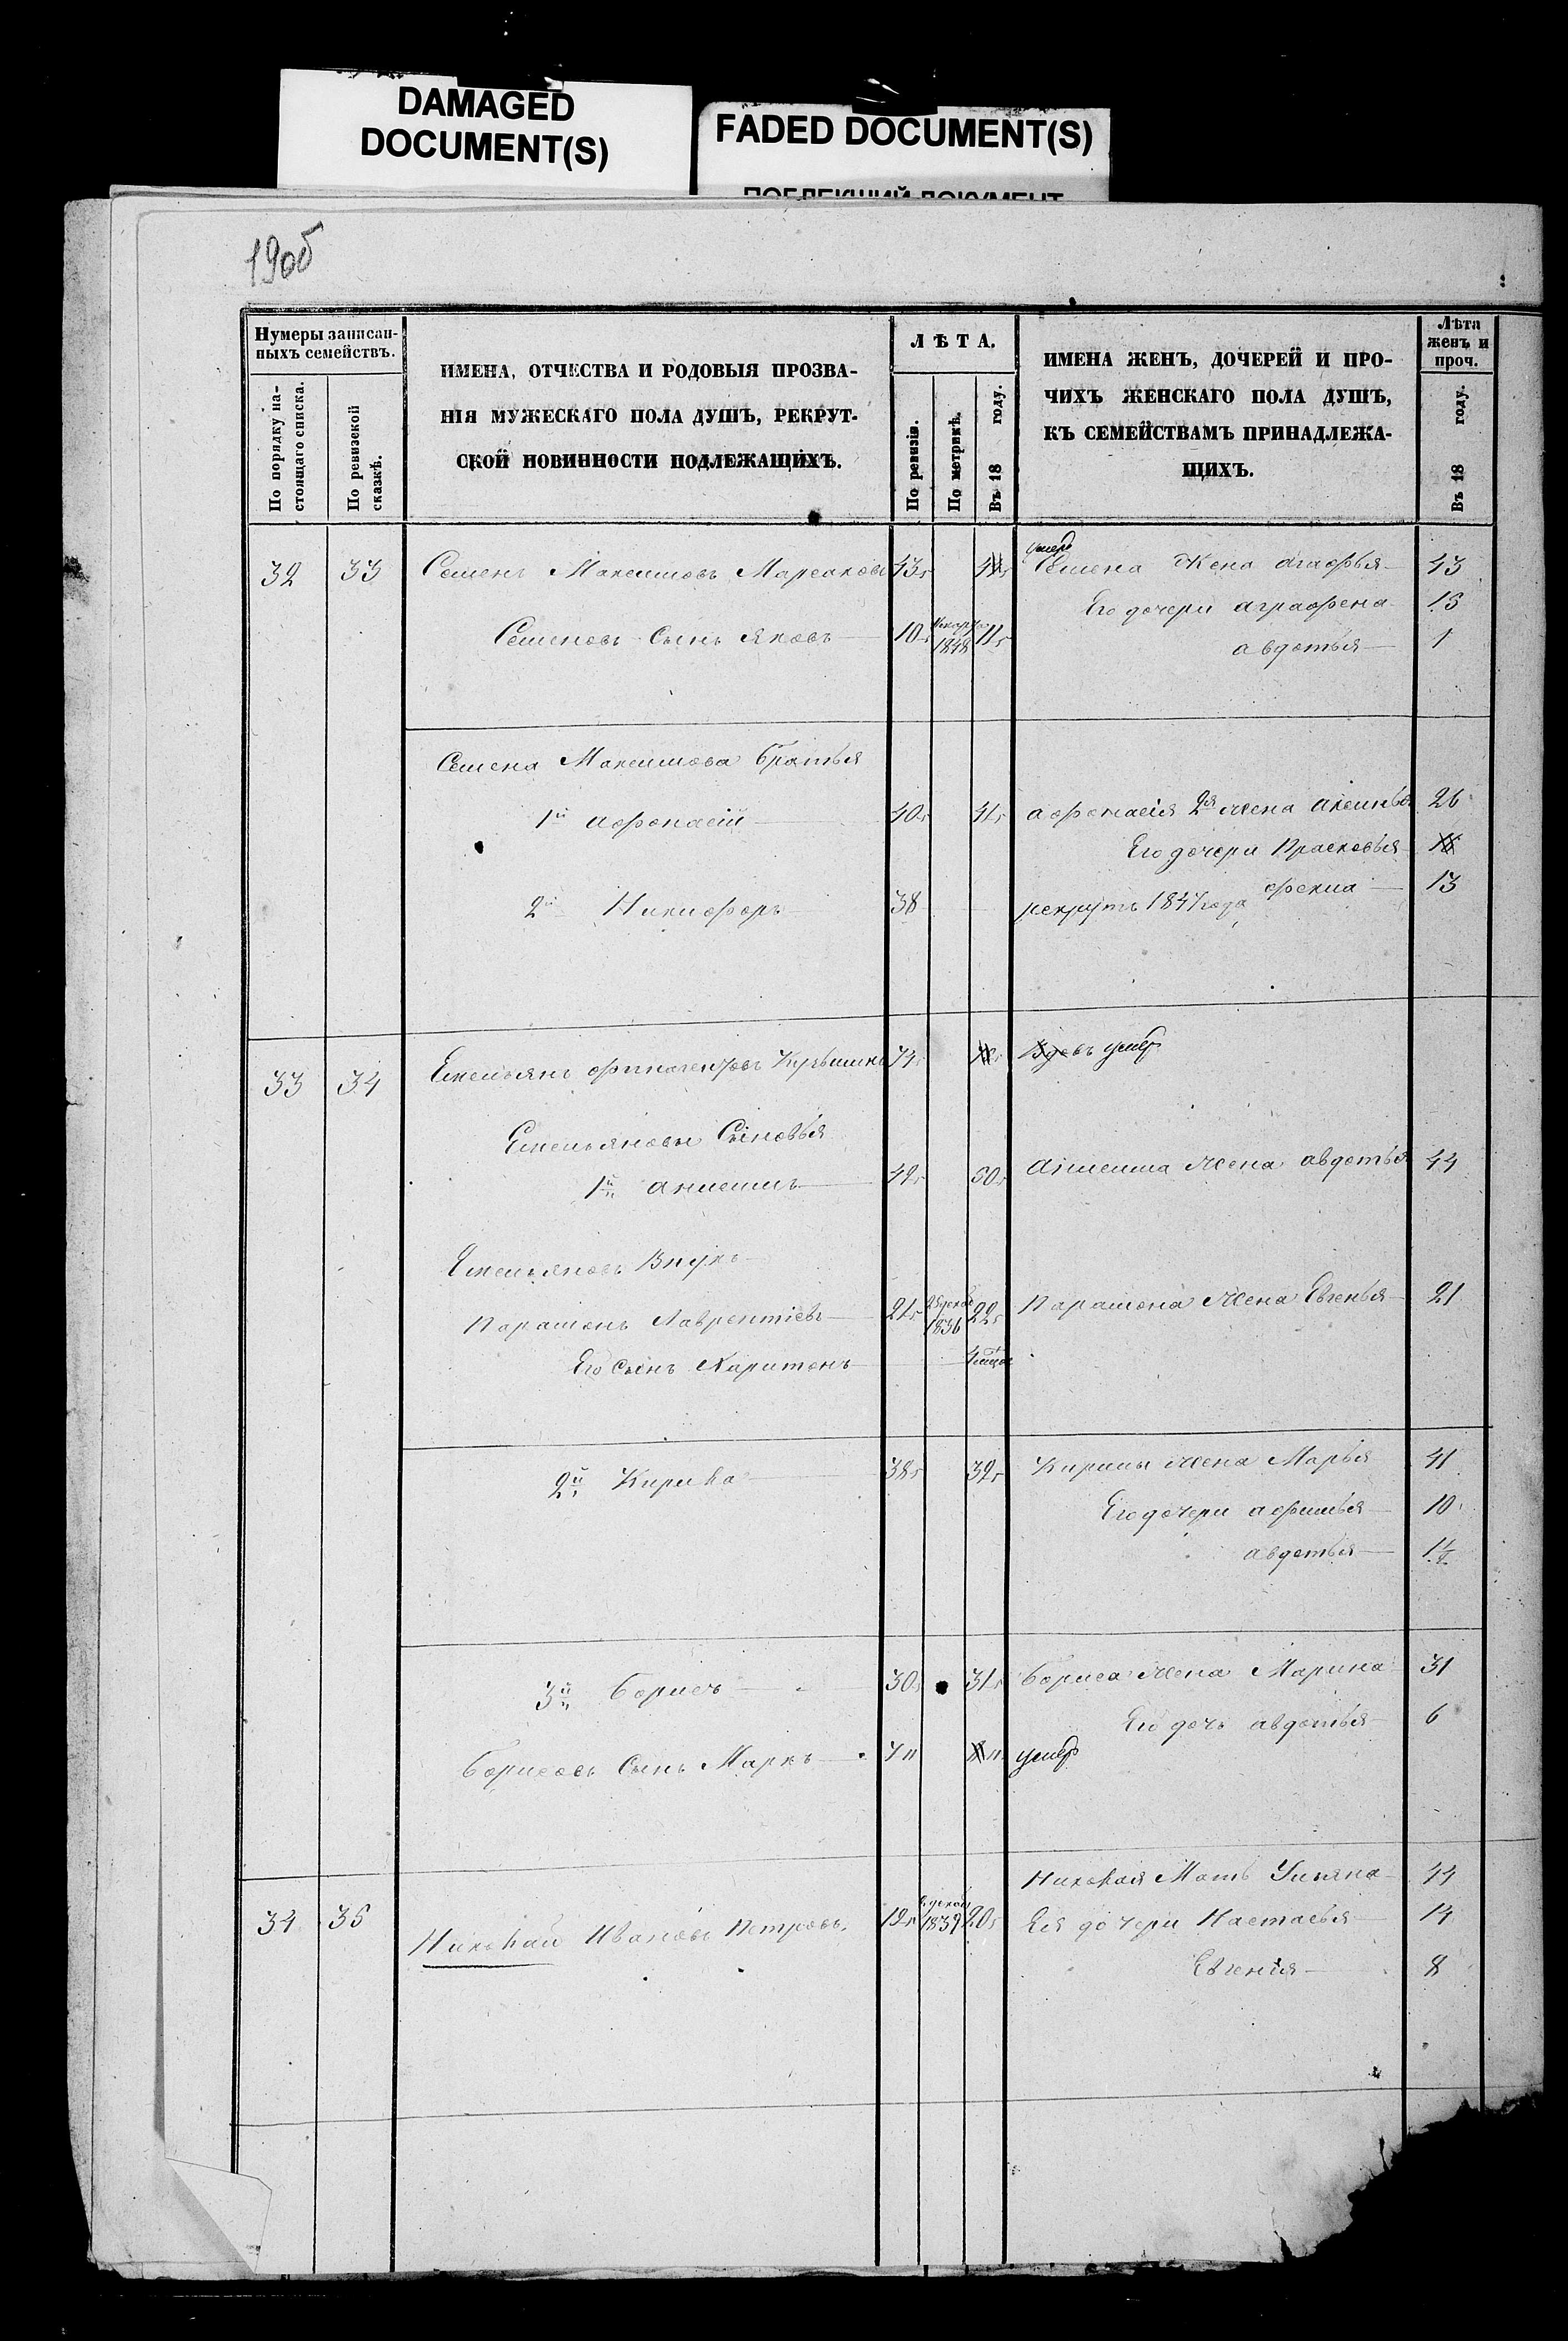 DAMAGED
DOCUMENT(S)
FADED DOCUMENT(S)
ПОБЛЕКШИЙ ДОКУМЕНТ
190б
Нумеры записан-
ныхъ семействъ.
По порядку на-
стоящаго списка.
По ревизской
сказкѣ.
ИМЕНА, ОТЧЕСТВА И РОДОВЫЯ ПРОЗВА-
НІЯ МУЖЕСКАГО ПОЛА ДУШЪ, РЕКРУТ-
СКОЙ ПОВИННОСТИ ПОДЛЕЖАЩИХЪ.
ЛѢТА.
По ревизіи.
По метрикѣ.
Въ 18 году.
ИМЕНА ЖЕНЪ, ДОЧЕРЕЙ И ПРО-
ЧИХЪ ЖЕНСКАГО ПОЛА ДУШЪ,
КЪ СЕМЕЙСТВАМЪ ПРИНАДЛЕЖА-
ЩИХЪ.
Лѣта
женъ и
проч.
Въ 18 году.
умеръ
32 33 Семенъ Максимовъ 43 Семена Жена Агафья 43
Его дочери аграфена 15
Семеновъ Сынъ Яковъ 10 1848 11 авдотья 1
Семена Максимова братья
1й афонасій 40 41 афонасія 2я жена аксинья 26
Его дочери Прасковья
2й Никифоръ 38 рекрутъ 1847 года фекла 13
33 34 Емельянъ 74 Вдовъ умеръ
Емельяновы Сыновья
1й анисимъ 49 50 Анисима жена авдотья 44
Емельяновъ Внукъ
Парамонъ Лаврентіевъ 21 1836 22 Парамона жена Евгенья 21
Его сынъ Харитонъ
2й Кирила 38 39 Кирилы жена Марья 41
Его дочери афимья 10
авдотья
3й Борисъ 30 31 Бориса жена Марина 31
Его дочь авдотья 6
Борисовъ Сынъ Маркъ 7 умеръ
34 35 Николай Ивановъ Петровъ. 19 1839 20 Николая Мать Ульяна 44
Ея дочери Настасья 14
Евгенія 8